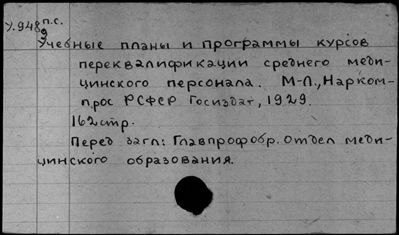 У.948 п.с.
9
Учебные планы и программы курсов
переквалификации среднего меди-
цинского персонала. М-Л., Нарком-
прос РСФСР Госиздат, 1929.
162 стр.
Перед загл: Главпрофобр. Отдел меди-
цинского образования.